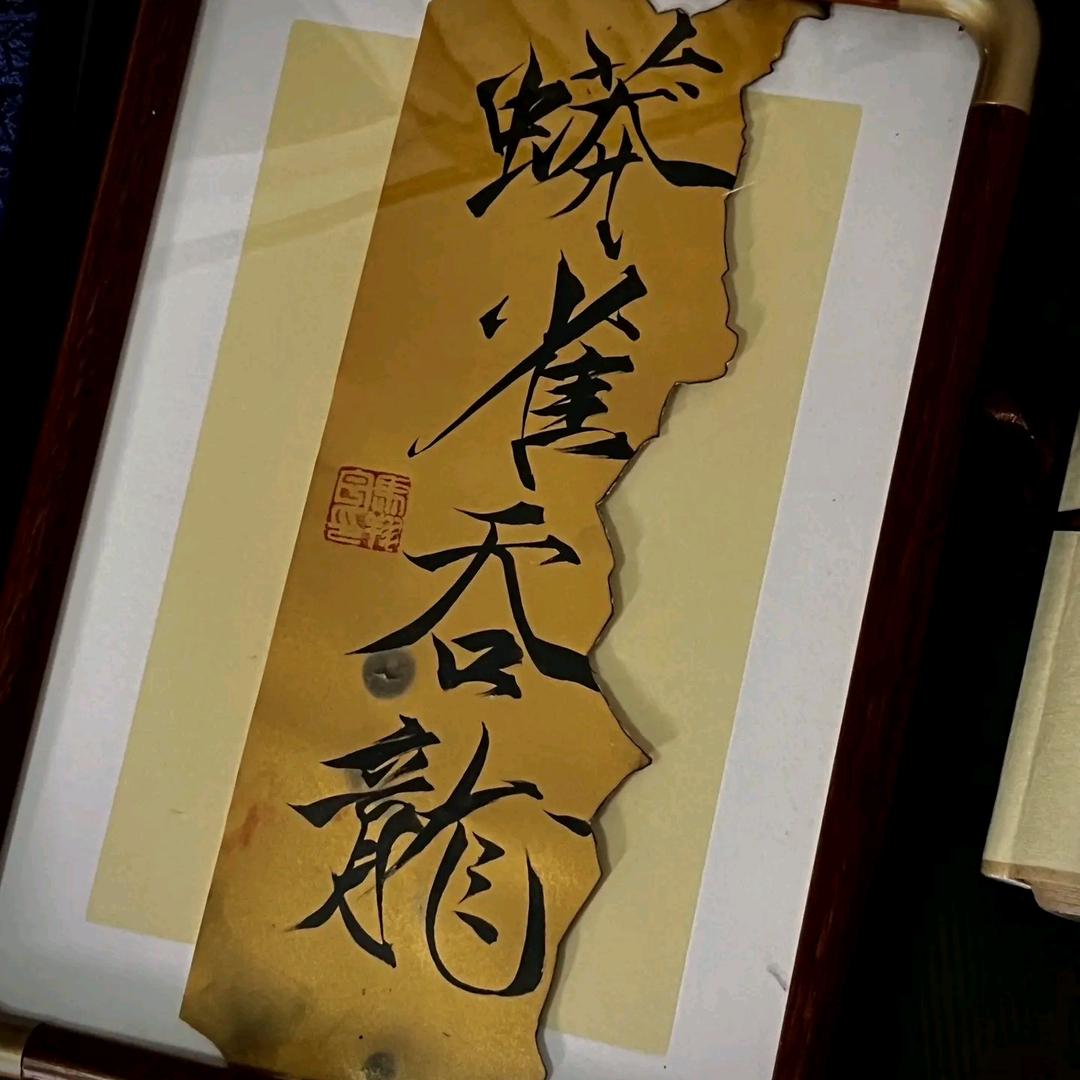 蟒雀吞龍